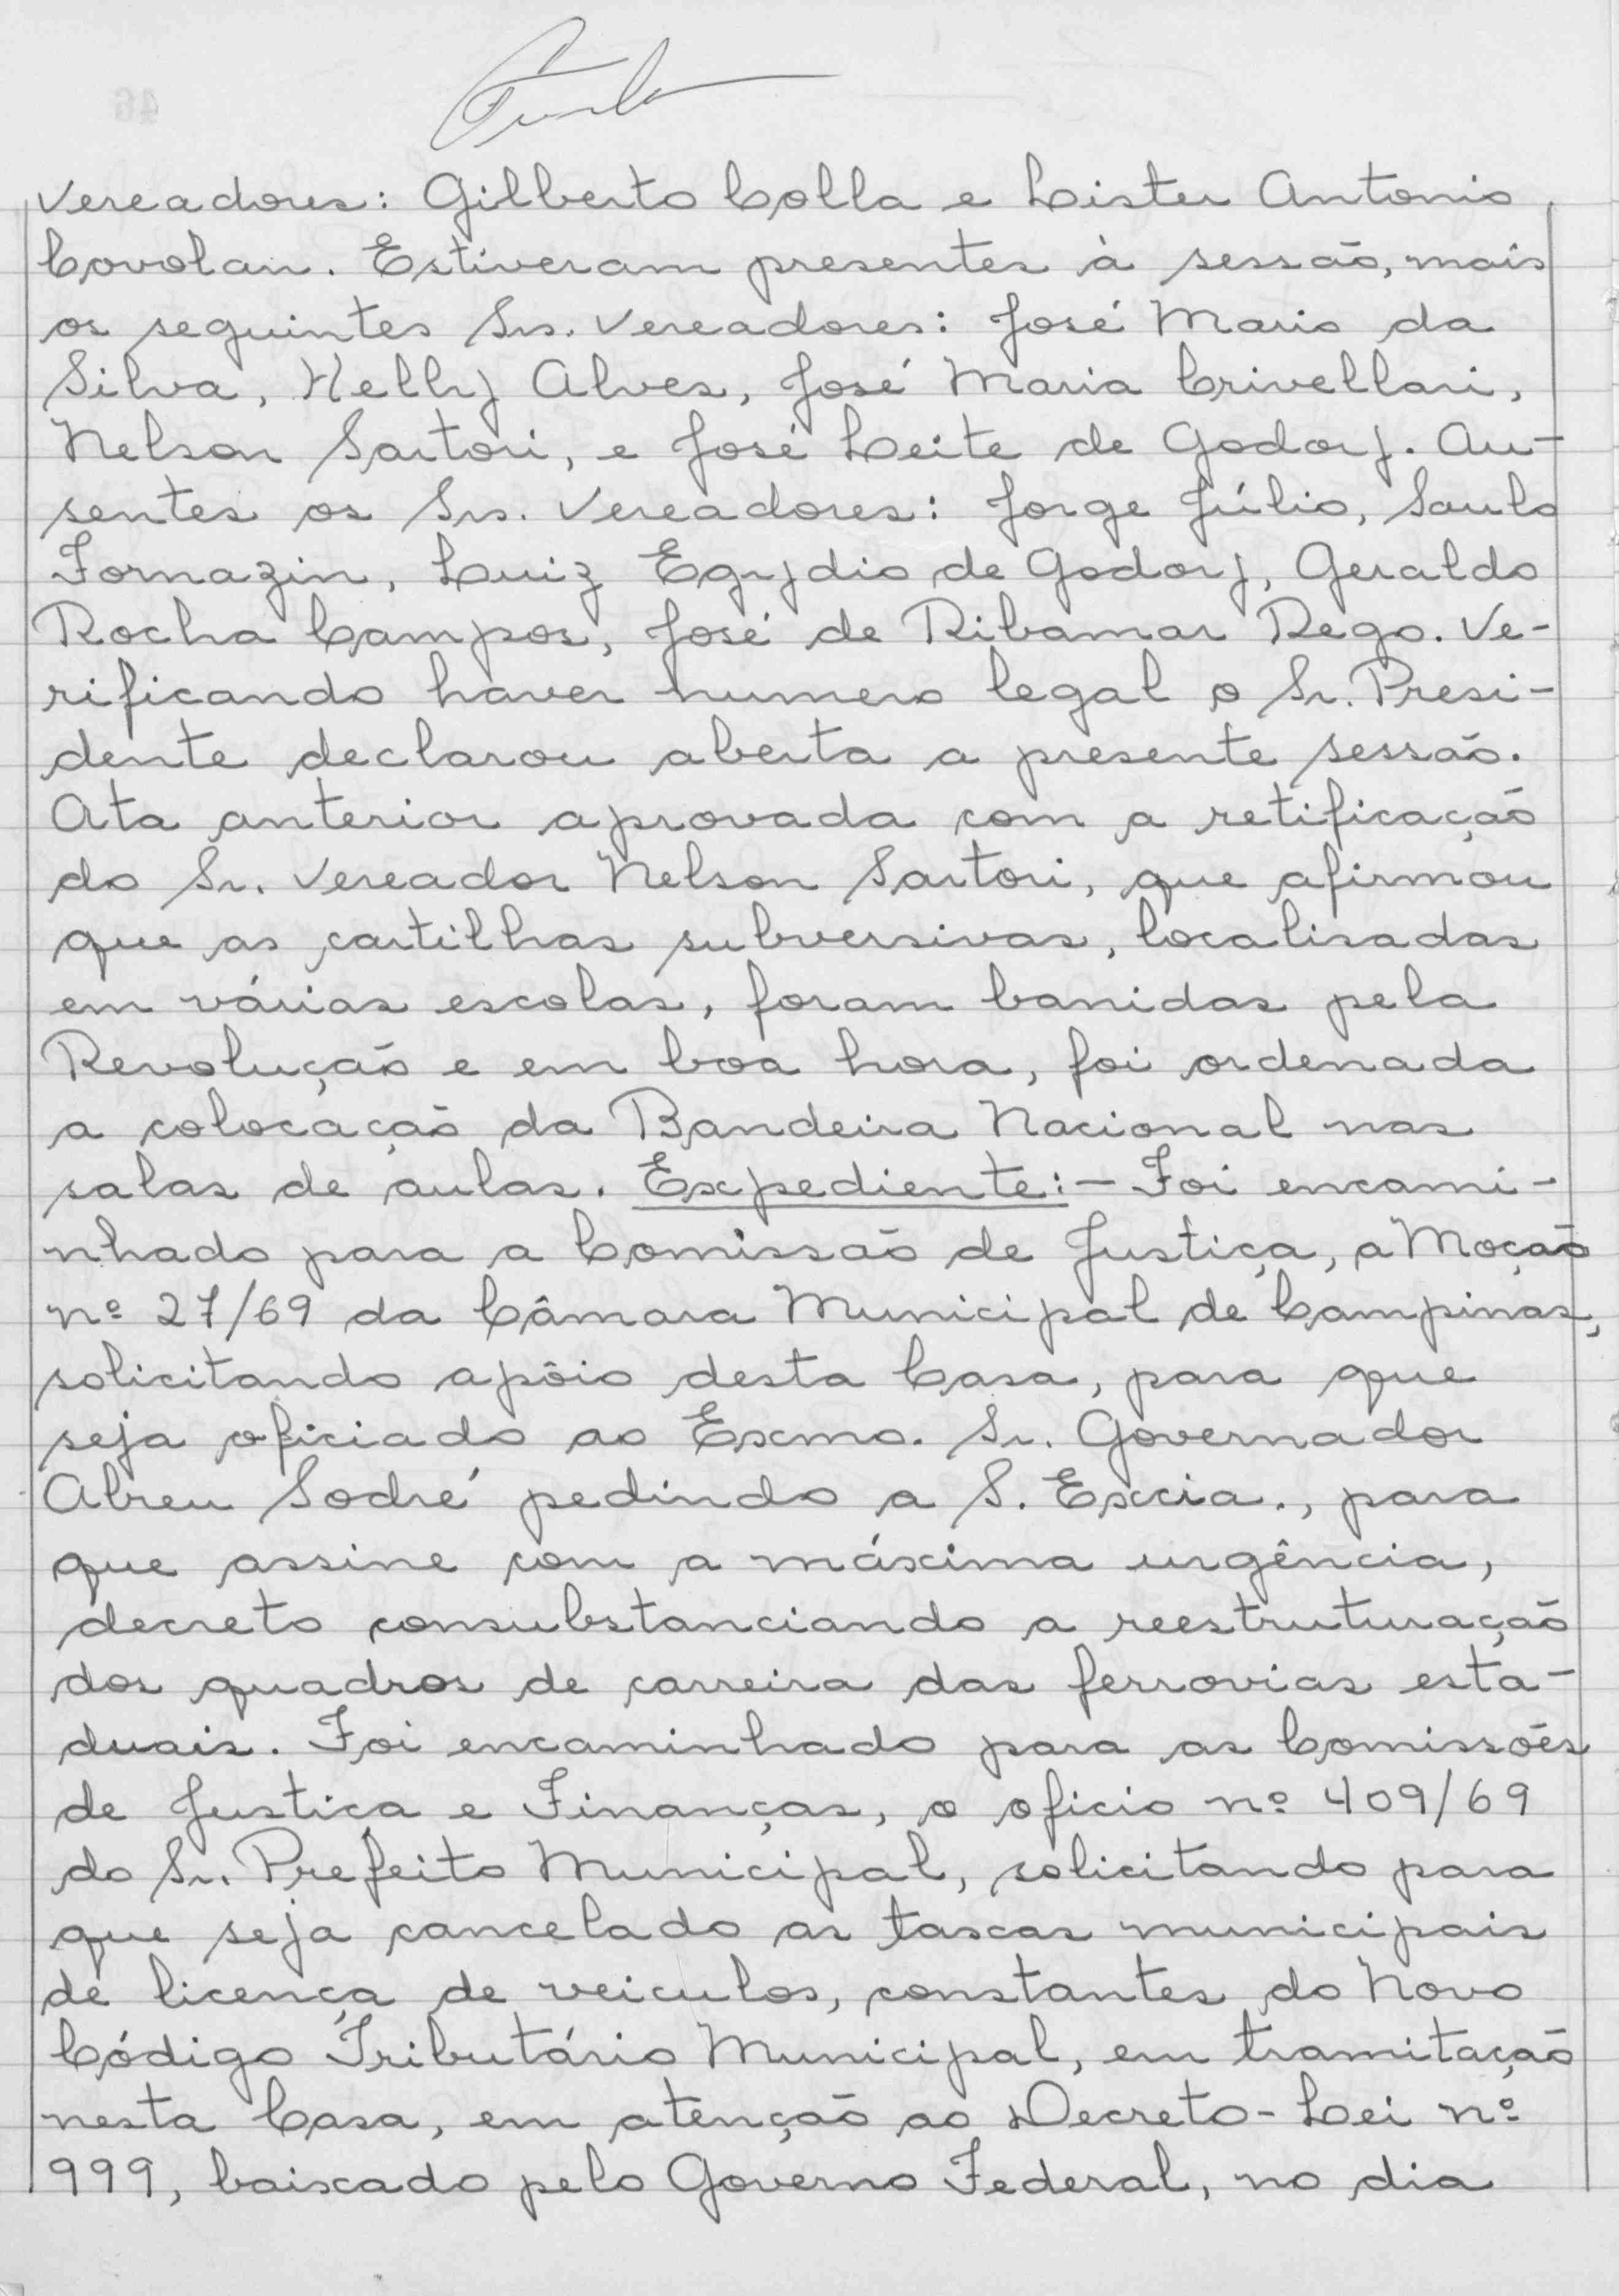 Vereadores: Gilberto Colla e Lister Antonio
Covolan. Estiveram presentes à sessão, mais
os seguintes Srs. Vereadores: José Mario da
Silva, Helly Alves, José Maria Crivellari,
Nelson Sartori, e José Leite de Godoy. Au-
sentes os Srs. Vereadores: Jorge Júlio, Saulo
Fornazin, Luiz Egydio de Godoy, Geraldo
Rocha Campos, José de Ribamar Rego. Ve-
rificando haver numero legal o Sr. Presi-
dente declarou aberta a presente sessão.
Ata anterior aprovada com a retificação
do Sr. Vereador Nelson Sartori, que afirmou
que as cartilhas subversivas, localisadas
em várias escolas, foram banidas pela
Revolução e em boa hora, foi ordenada
a colocação da Bandeira Nacional nas
salas de aulas. Expediente:- Foi encami-
nhado para a Comissão de Justiça, a Moção
nº 27/69 da Câmara Municipal de Campinas,
solicitando apôio desta Casa, para que
seja oficiado ao Exmo. Sr. Governador
Abreu Sodré pedindo a S. Excia., para
que assine com a máxima urgência,
decreto consubstanciando a reestruturação
dos quadros de carreira das ferrovias esta-
duais. Foi encaminhado para as Comissões
de Justiça e Finanças, o oficio nº 409/69
do Sr. Prefeito Municipal, solicitando para
que seja cancelado as taxas municipais
de licença de veiculos, constantes do Novo
Código Tributário Municipal, em tramitação
nesta Casa, em atenção ao Decreto-Lei nº
999, baixado pelo Governo Federal, no dia